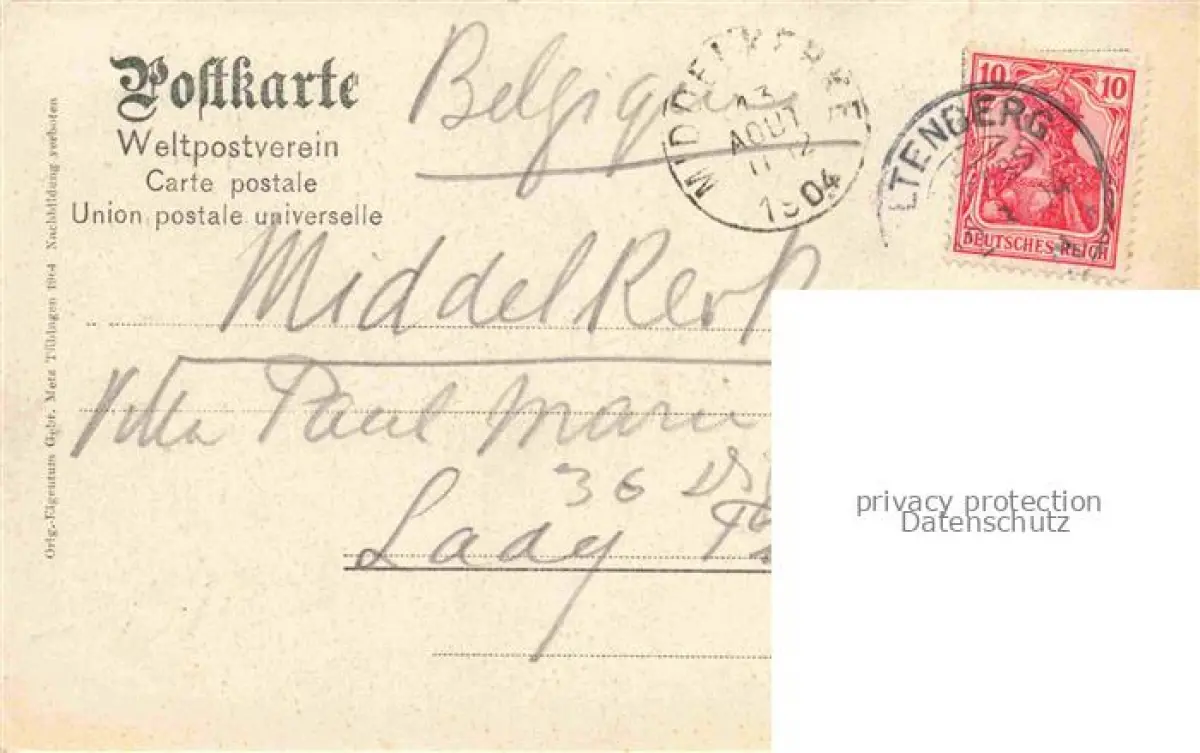 Postkarte
Weltpostverein
Carte postale
Union postale universelle
Orig.-Eigentum Gebr. Metz Tübingen 1904 Nachbildung verboten
Belgique
MIDDELKERKE
13
AOUT
11-12
1904
LTENBERG
10 10
DEUTSCHES REICH
Middelkerk
Villa Paul Maru
36
Lady
privacy protection
Datenschutz